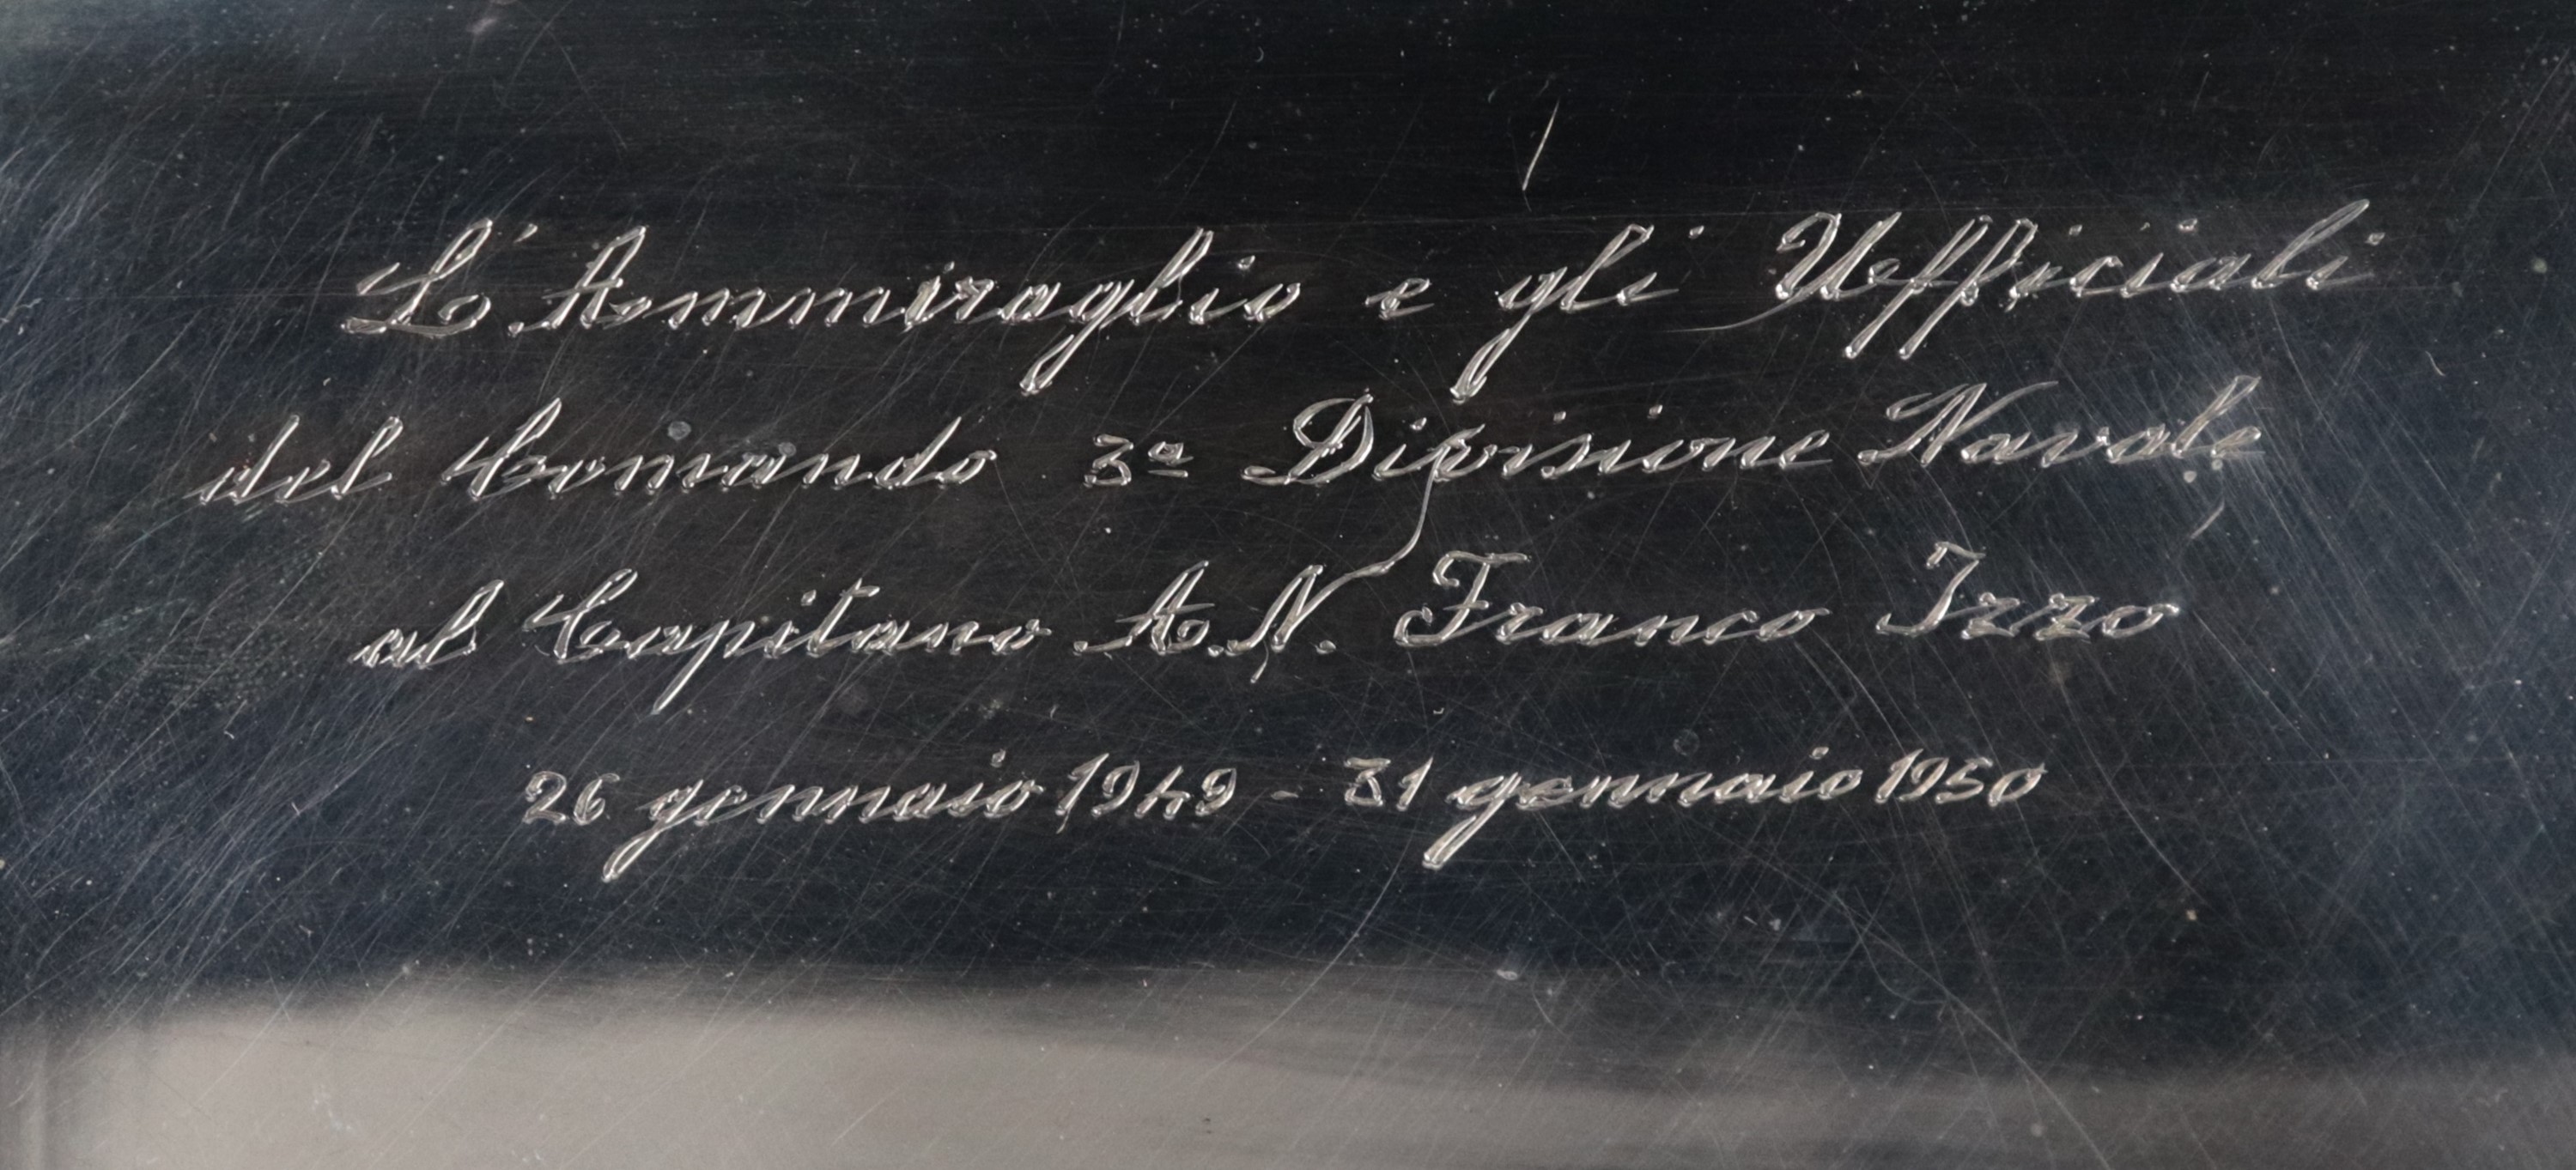 L'Ammiraglio e gli Ufficiali
del Comando 3ª Divisione Navale
al Capitano A.N. Franco Izzo
26 gennaio 1949 - 31 gennaio 1950